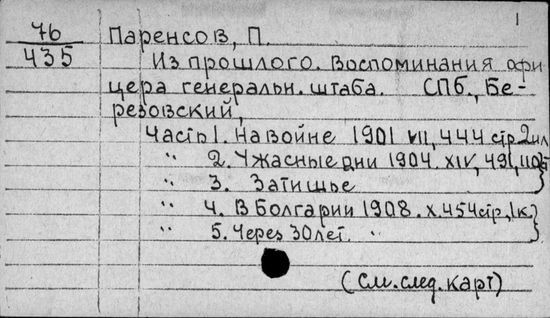 1
76
435
Паренсов, П.
Из прошлого. Воспоминания офи
цера генеральн. штаба. СПб., Бе-
резовский,
Часть 1. На войне 1901 VII, 444 стр 2 ил
" 2. Ужасные дни 1904. XIV, 491,
" 3. Затишье
" 4. В Болгарии 1908. X. 454 стр, 1 к.
" 5. Через 30 лет. "
(См. след. карт)